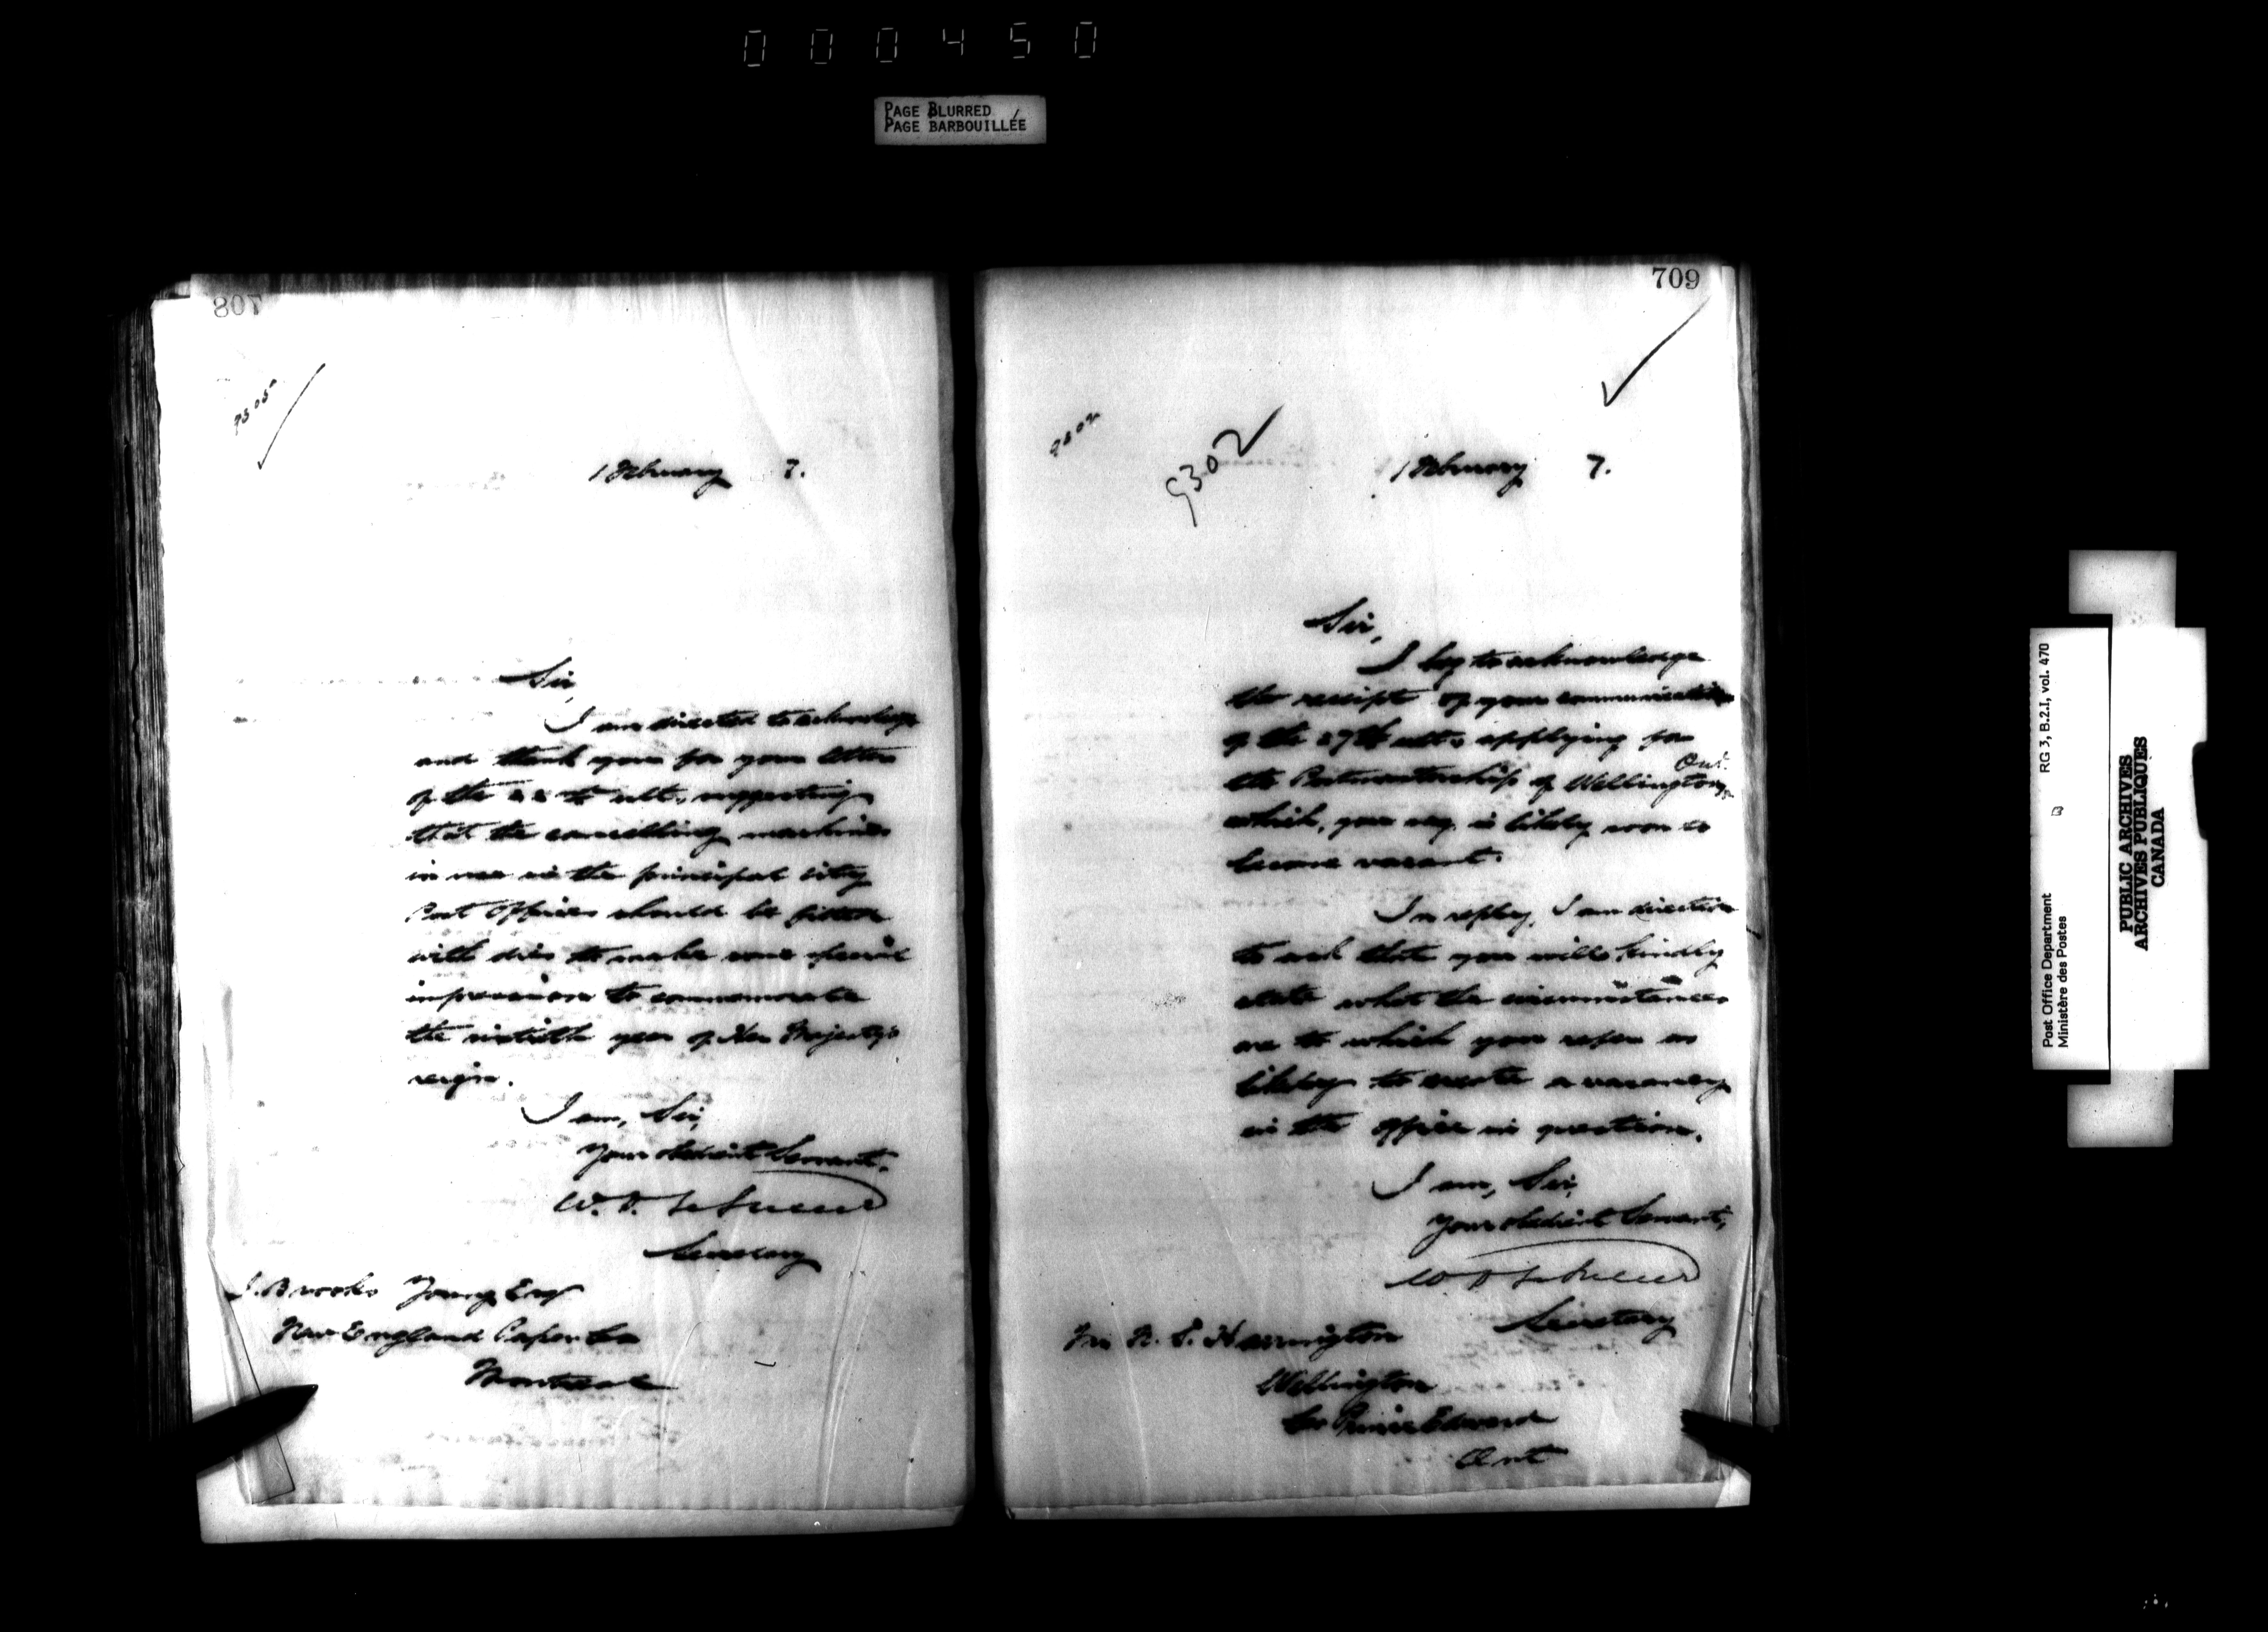 000450
PAGE BLURRED
PAGE BARBOUILLÉE
708
9305
1 February 7.
Sir,
I am directed to acknowledge
and thank you for your letter
of the 22nd ult., suggesting
that the cancelling machines
in use in the principal city
Post Offices should be fitted
with dies to make some special
impression to commemorate
the sixtieth year of Her Majesty's
reign.
I am, Sir,
Your obedient Servant,
W. D. LeSueur
Secretary
J. Brooks Young Esq
New England Paper Co
Montreal
709
9302
9302
1 February 7.
Sir,
I beg to acknowledge
the receipt of your communication
of the 27th ult., applying for
the Postmastership of Wellington, Ont.
which, you say, is likely soon to
become vacant.
In reply, I am directed
to ask that you will kindly
state what the circumstances
are to which you refer as
likely to create a vacancy
in the office in question.
I am, Sir,
Your obedient Servant,
W D LeSueur
Secretary
Mr Harrington
Wellington
Co Prince Edward
Ont
Post Office Department RG 3, B.2.I, vol. 470
Ministère des Postes
PUBLIC ARCHIVES
ARCHIVES PUBLIQUES
CANADA